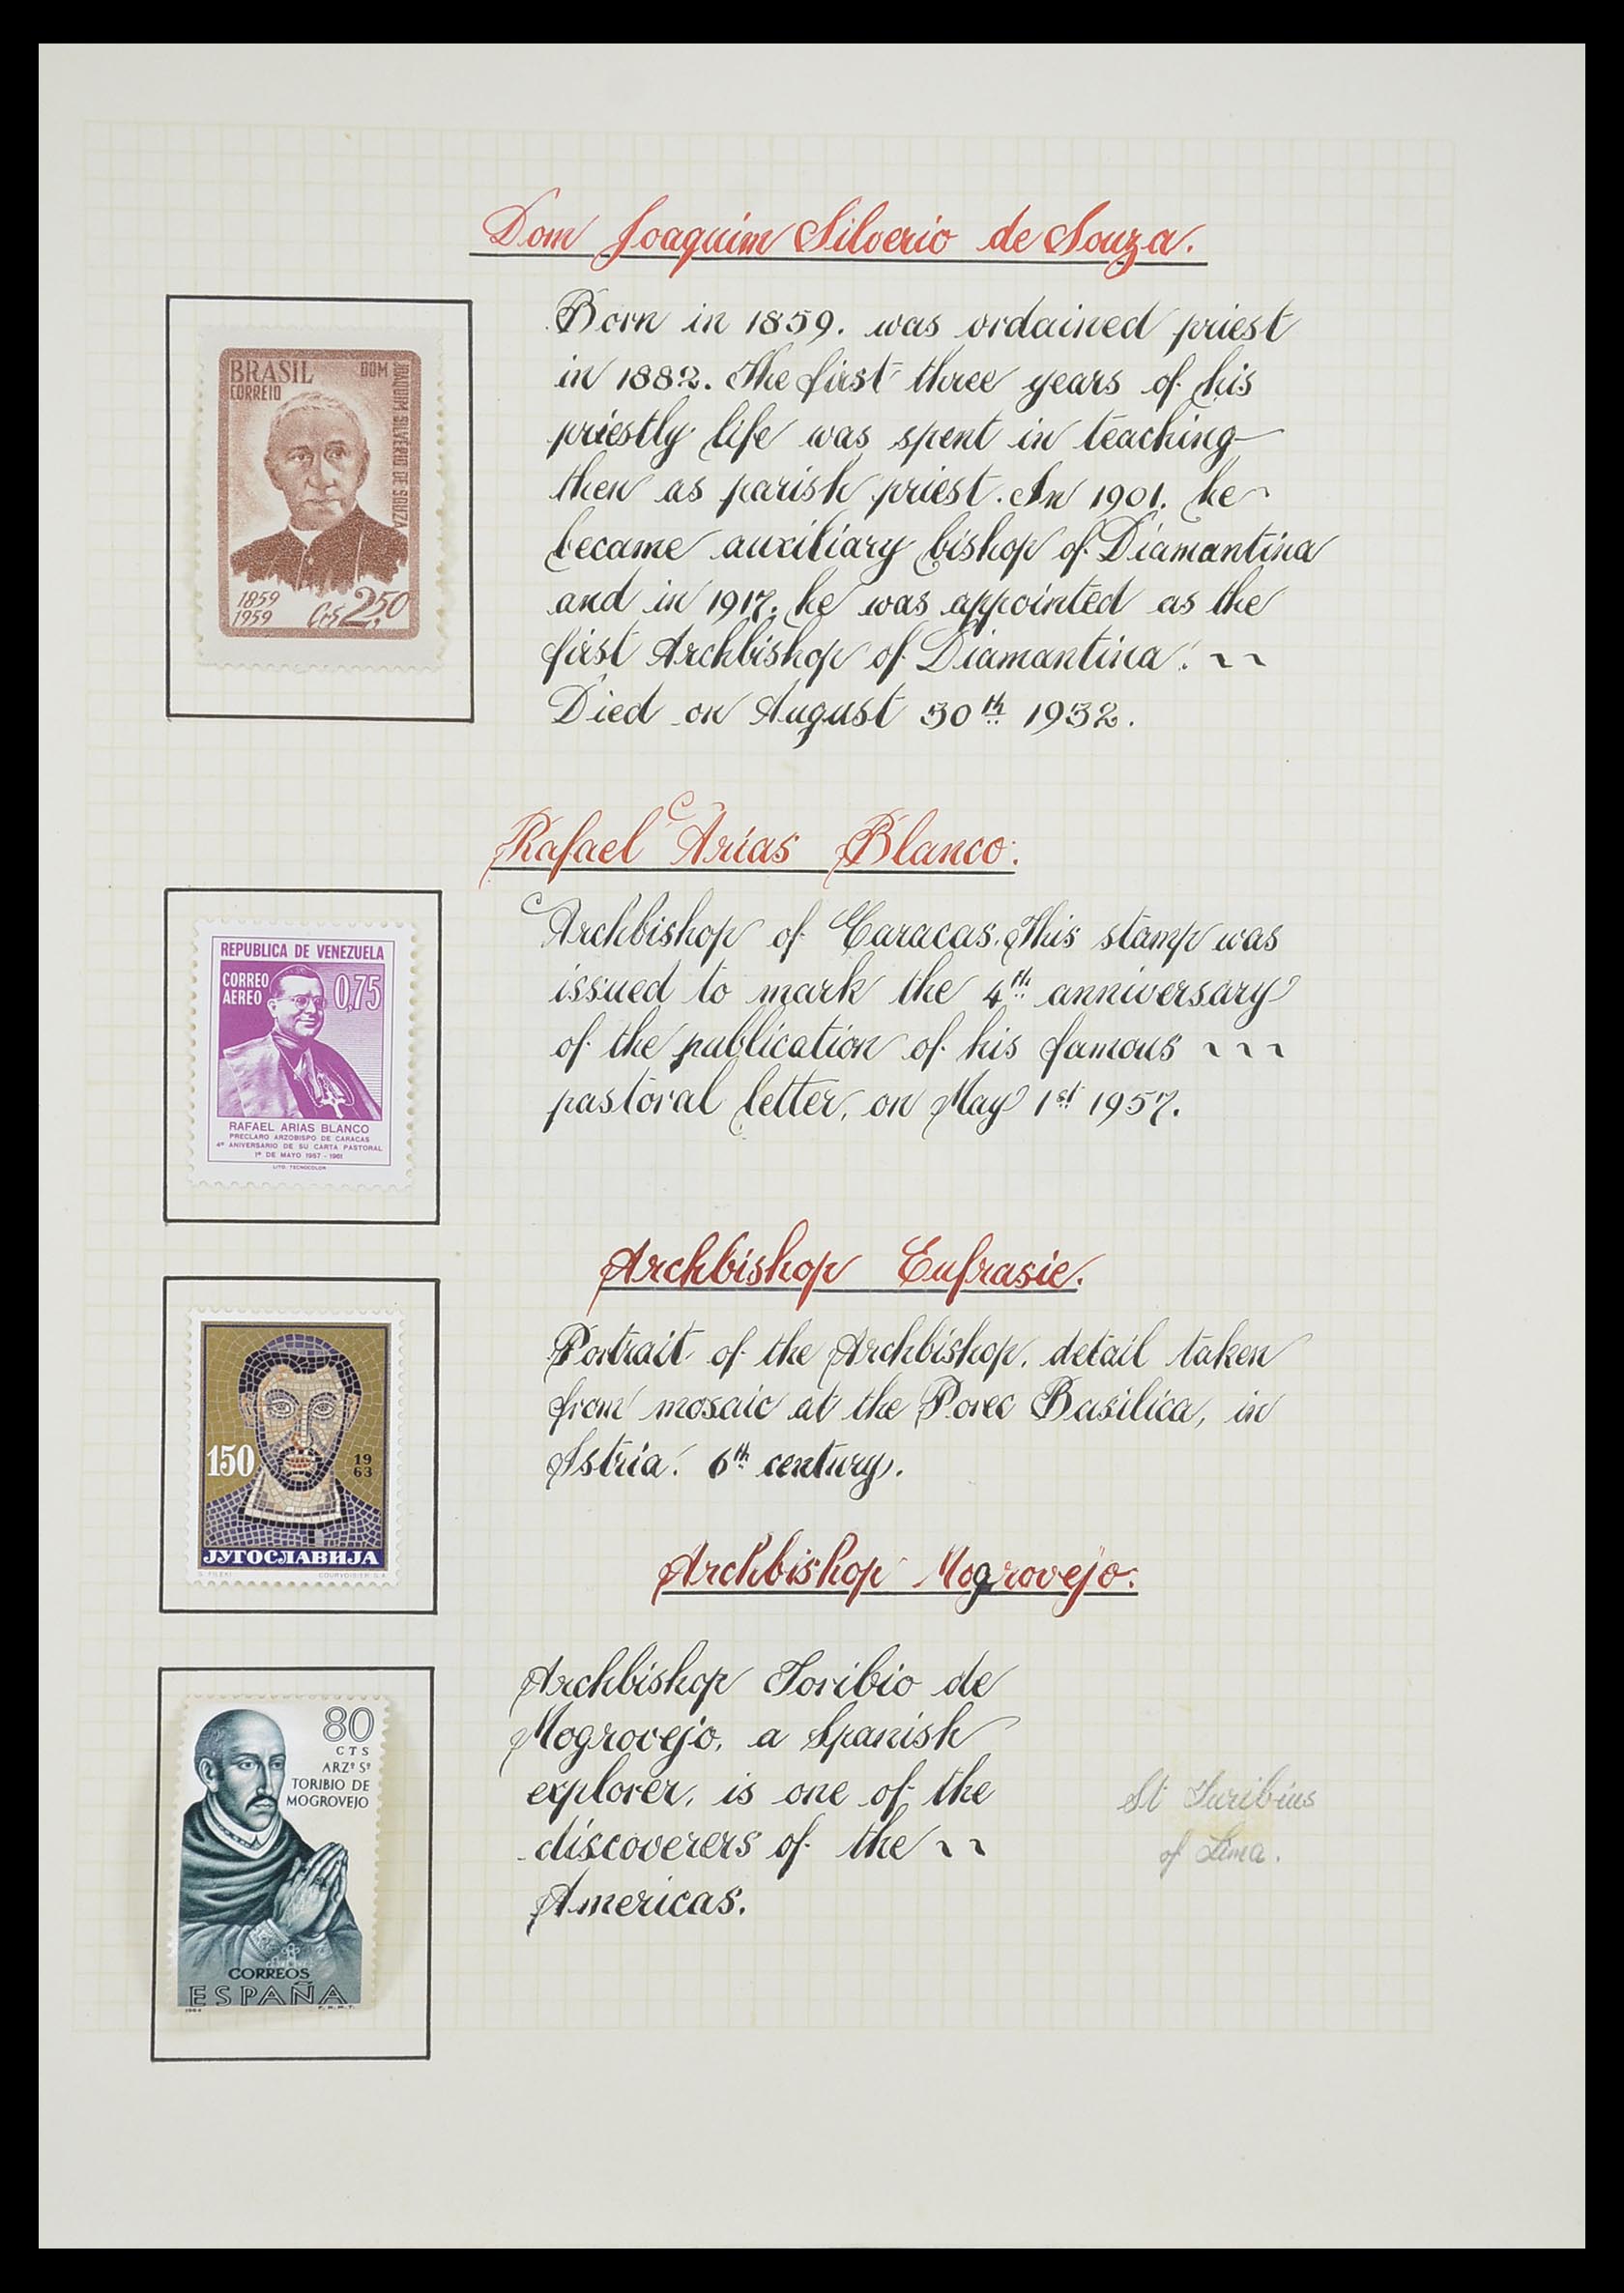 Dom Joaquim Silverio de Souza.
BRASIL
CORREIO
DOM JOAQUIM SILVERIO DE SOUZA
1859
1959
Cr$ 2,50
Born in 1859. was ordained priest
in 1882. The first three years of his
priestly life was spent in teaching
then as parish priest. In 1901, he
became auxiliary bishop of Diamantina
and in 1917, he was appointed as the
first Archbishop of Diamantina. ~ ~
Died on August 30th 1932.
Rafael Arias Blanco.
REPUBLICA DE VENEZUELA
CORREO
AEREO
0,75
RAFAEL ARIAS BLANCO
PRECLARO ARZOBISPO DE CARACAS
4º ANIVERSARIO DE SU CARTA PASTORAL
1º DE MAYO 1957 - 1961
LITO. TECNOCOLOR
Archbishop of Caracas. This stamp was
issued to mark the 4th anniversary
of the publication of his famous ~ ~ ~
pastoral letter, on May 1st 1957.
Archbishop Eufrasie.
150
19
63
ЈУГОСЛАВИЈА
COURVOISIER S.A.
Portrait of the Archbishop, detail taken
from mosaic at the Porec Basilica, in
Istria. 6th century.
Archbishop Mogrovejo.
80
CTS
ARZº Sº
TORIBIO DE
MOGROVEJO
CORREOS
ESPAÑA
F.N.M.T.
Archbishop Toribio de
Mogrovejo, a Spanish
explorer, is one of the
discoverers of the ~ ~
Americas.
St Turibius
of Lima.